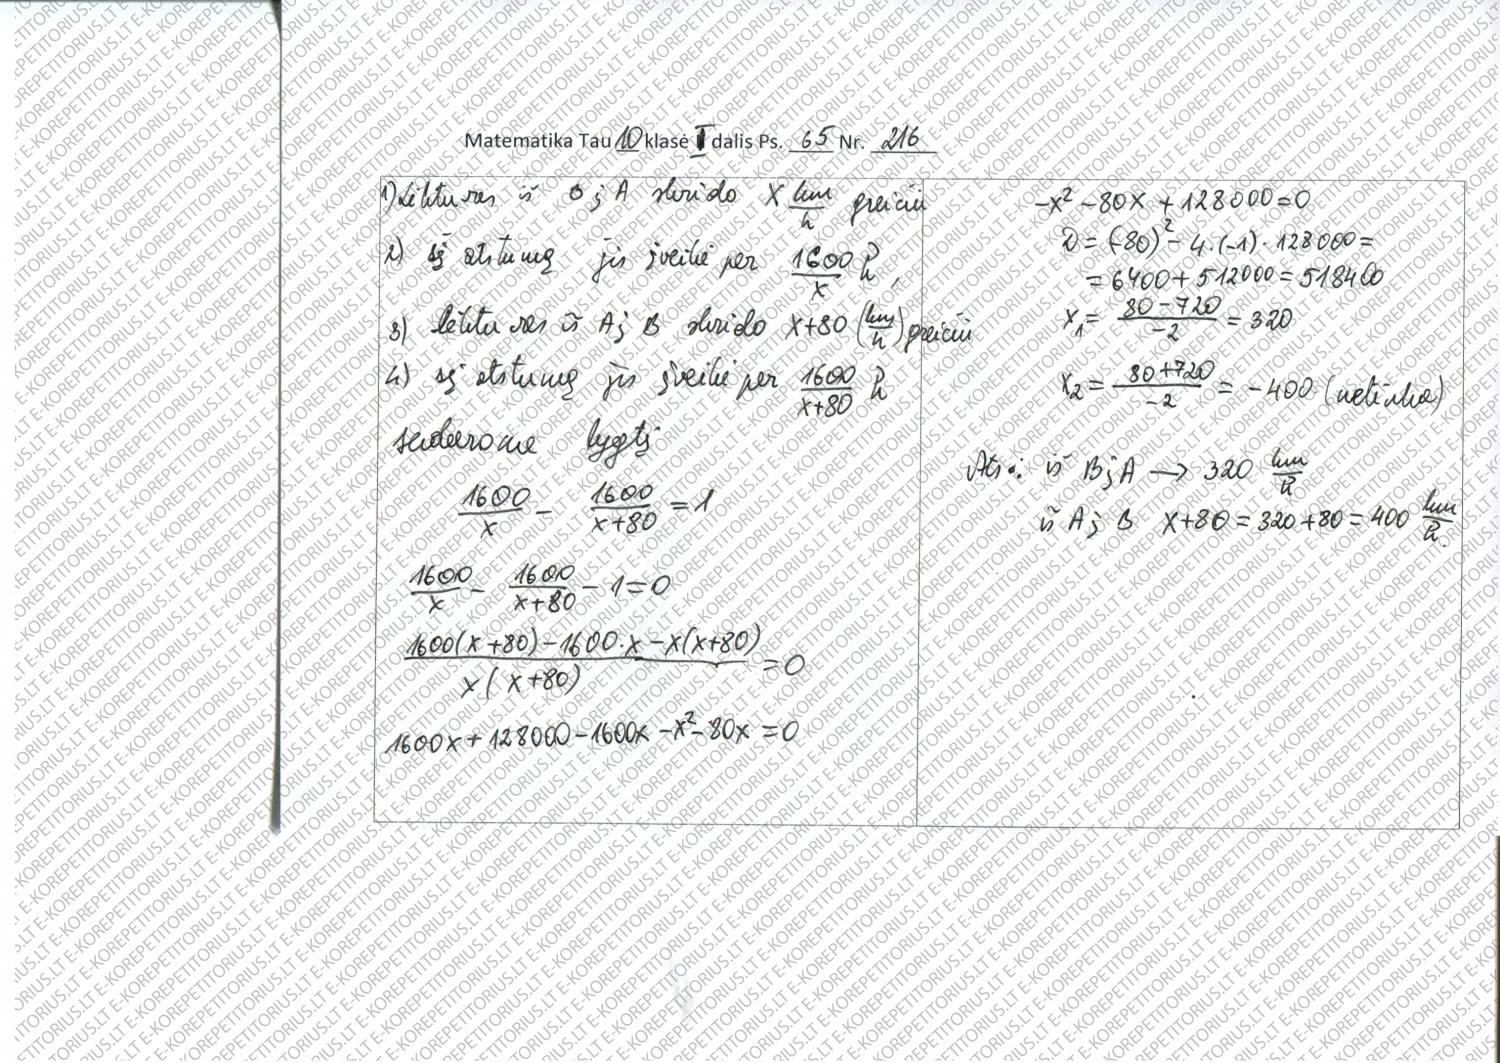 Matematika Tau 10 klasė I dalis Ps. 65 Nr. 216
1) Lėktuvas iš B į A skrido x km/h greičiu
2) šį atstumą jis įveikė per 1600/x h,
3) lėktuvas iš A į B skrido x+80 (km/h) greičiu
4) šį atstumą jis įveikė per 1600/x+80 h
sudarome lygtį
1600/x - 1600/x+80 = 1
1600/x - 1600/x+80 - 1 = 0
1600(x+80) - 1600·x - x(x+80)/x(x+80) = 0
1600x + 128000 - 1600x - x² - 80x = 0
-x² - 80x + 128000 = 0
D = (-80)² - 4·(-1)·128000 =
= 6400 + 512000 = 518400
x₁ = 80-720/-2 = 320
x₂ = 80+720/-2 = -400 (netinka)
Ats.: iš B į A → 320 km/h
iš A į B x+80 = 320+80 = 400 km/h.
E-KOREPETITORIUS.LT